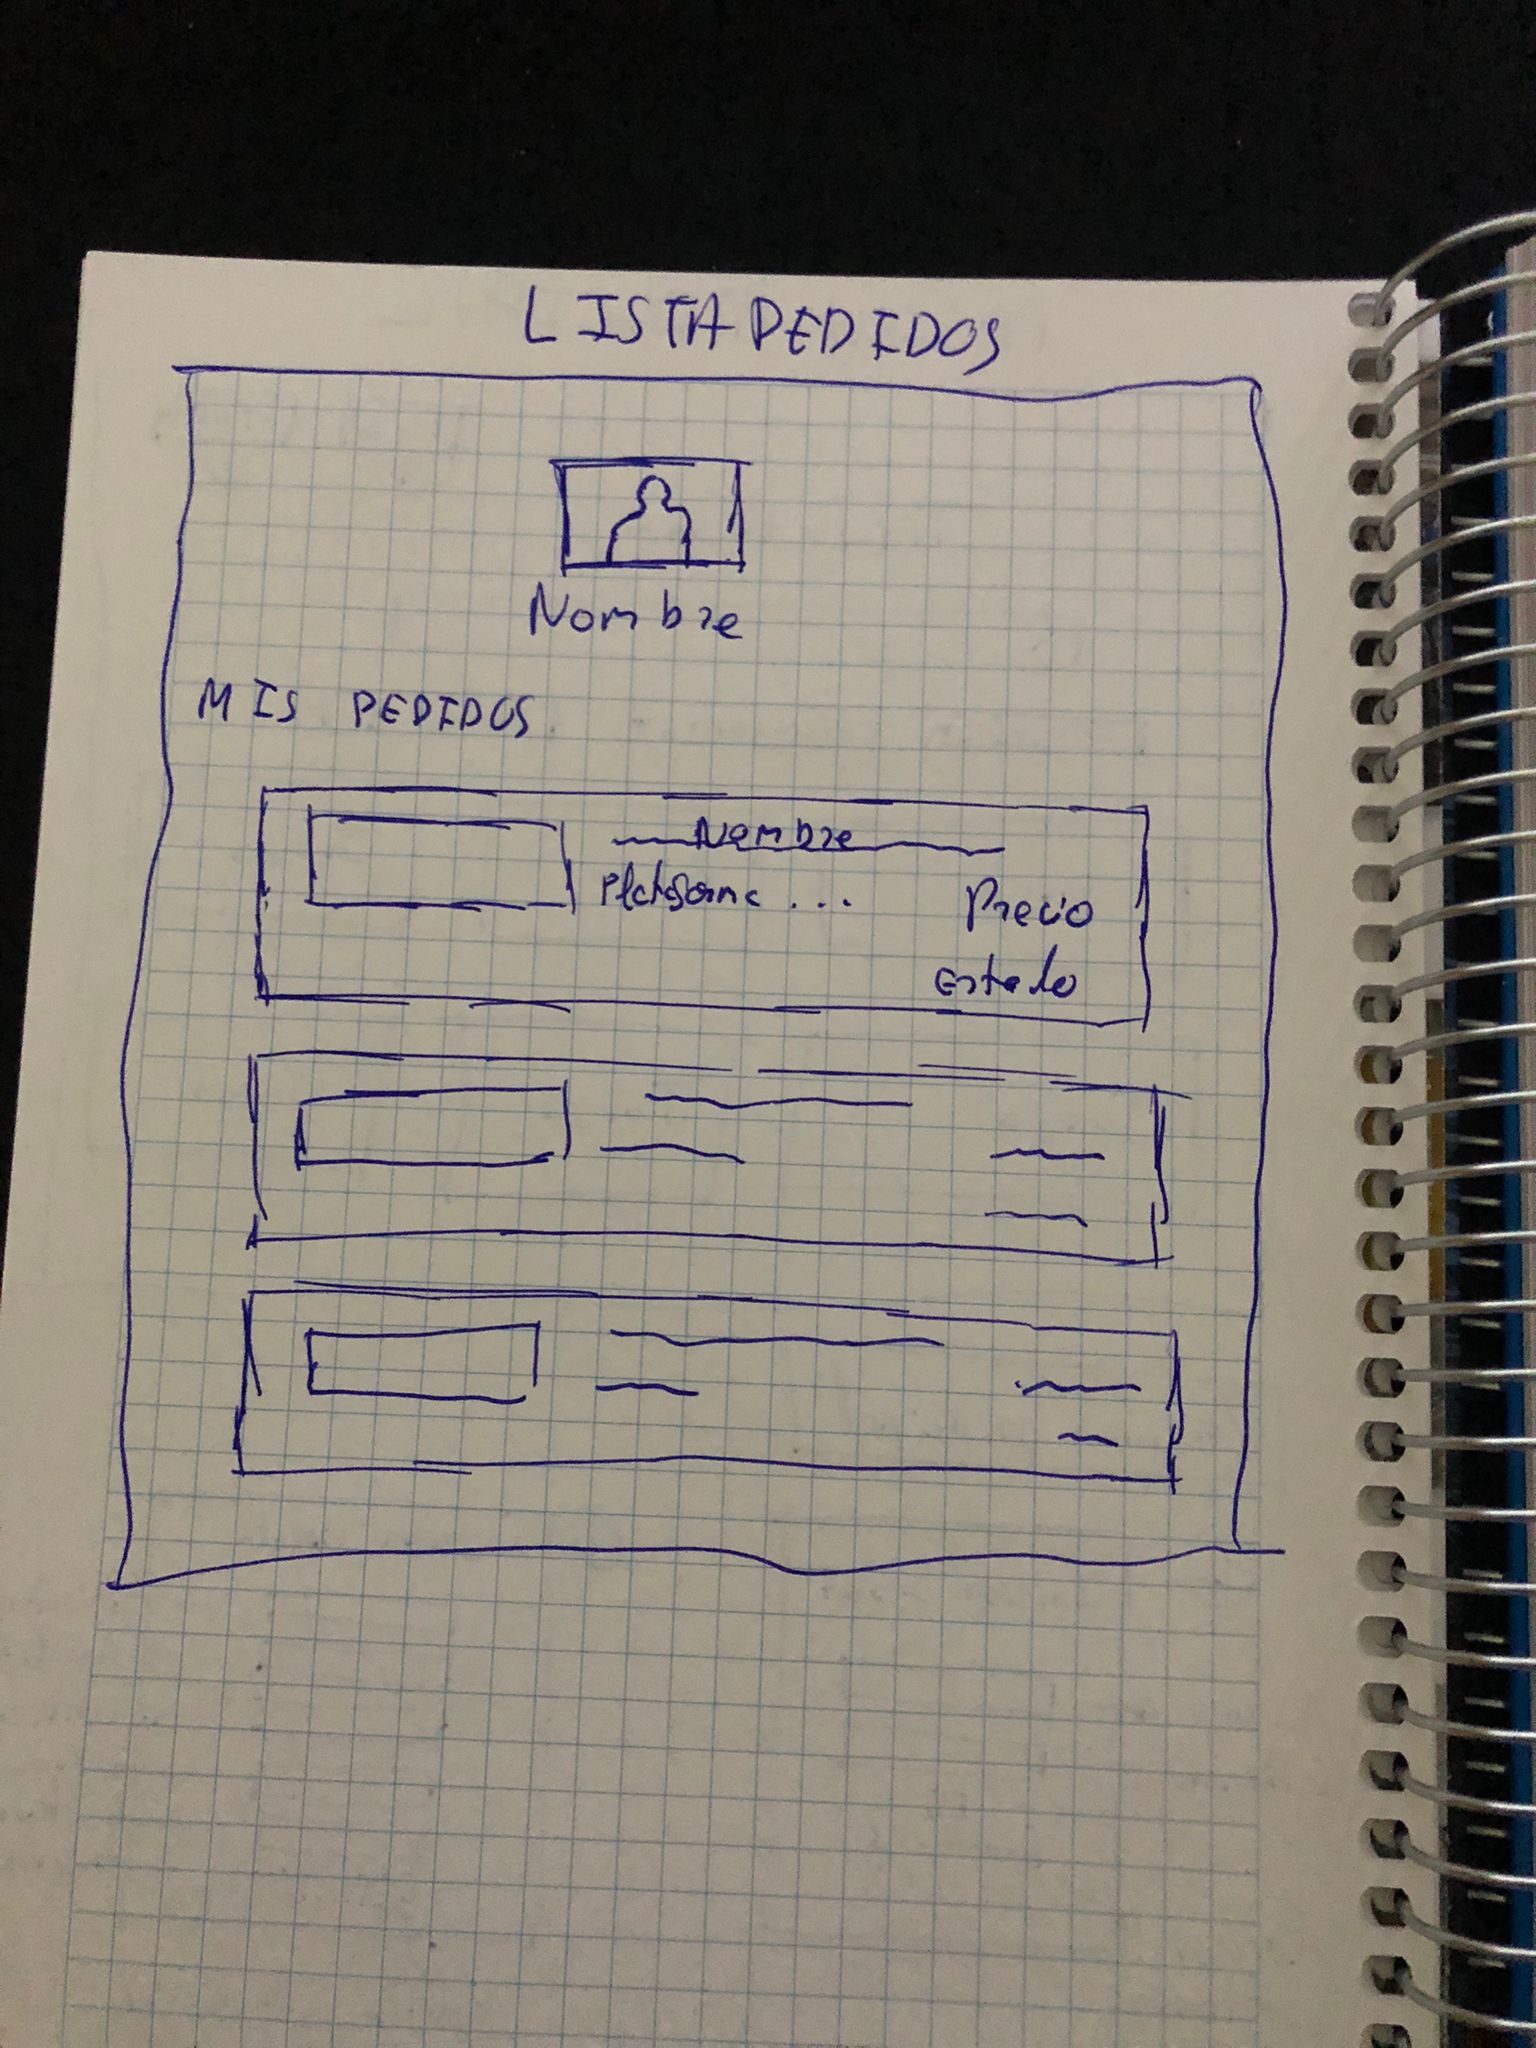 LISTA PEDIDOS
Nombre
MIS PEDIDOS
Nombre
Plataforma ...
Precio
Estado